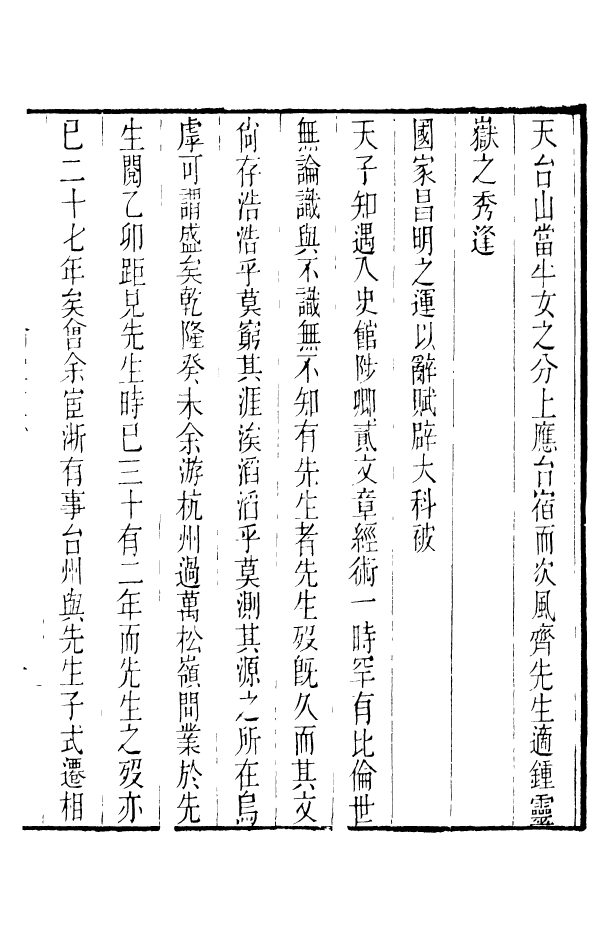 天台山當牛女之分上應台宿而次風齊先生適鍾靈
嶽之秀逢
國家昌明之運以辭賦辟大科被
天子知遇入史館陟卿貳文章經術一時罕有比倫世
無論識與不識無不知有先生者先生歿既久而其文
尙存浩浩乎莫窮其涯涘滔滔乎莫測其源之所在烏
虖可謂盛矣乾隆癸未余游杭州過萬松嶺問業於先
生閱乙卯距見先生時已三十有二年而先生之歿亦
已二十七年矣會余宦浙有事台州與先生子式遷相